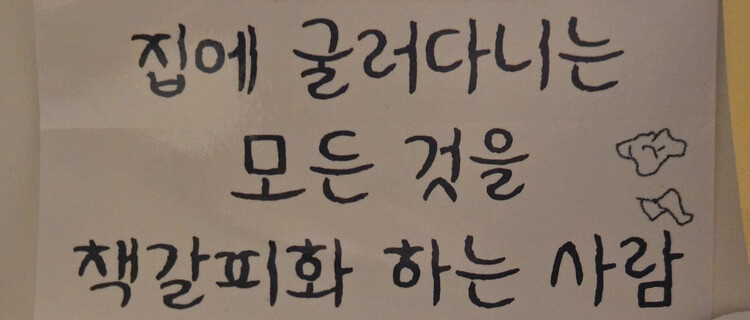 집에 굴러다니는
모든 것을
책갈피화 하는 사람